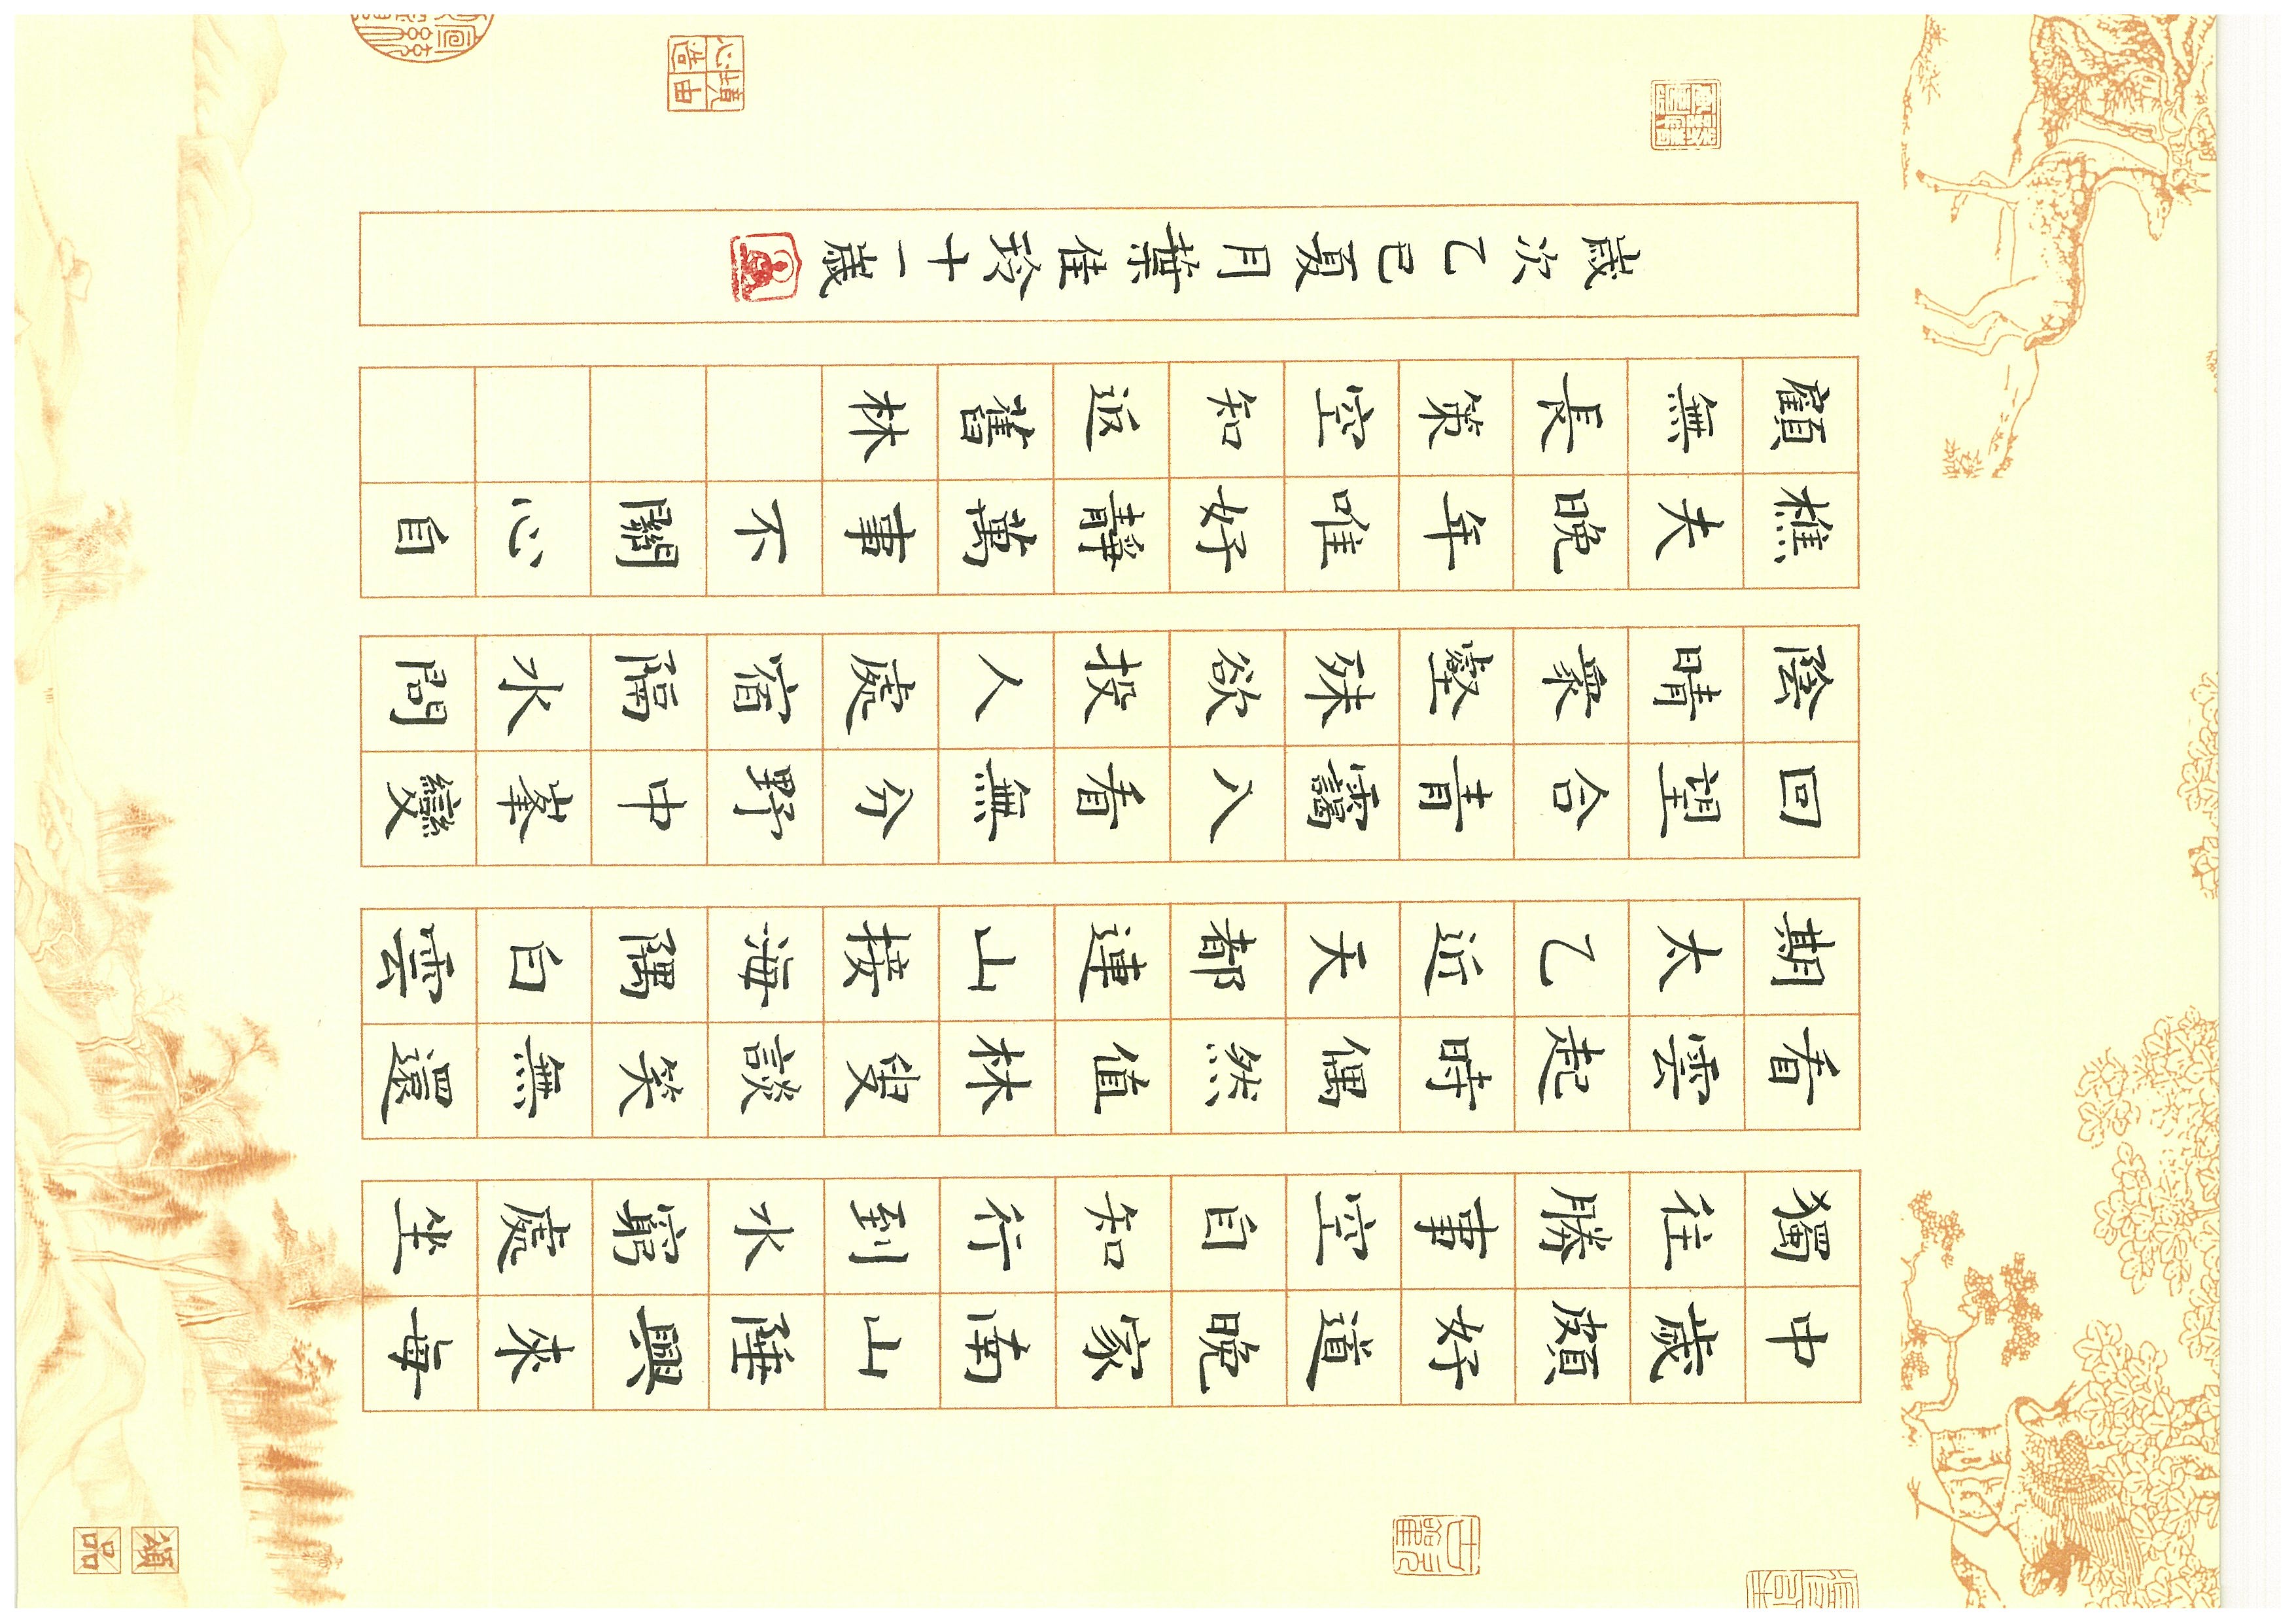 中歲頗好道晚家南山陲興來每
獨往勝事空自知行到水窮處坐
看雲起時偶然值林叟談笑無還
期太乙近天都連山接海隅白雲
回望合青靄入看無分野中峯變
陰晴衆壑殊欲投人處宿隔水問
樵夫晚年唯好靜萬事不關心自
顧無長策空知返舊林
歲次乙巳夏月葉佳玲十一歲